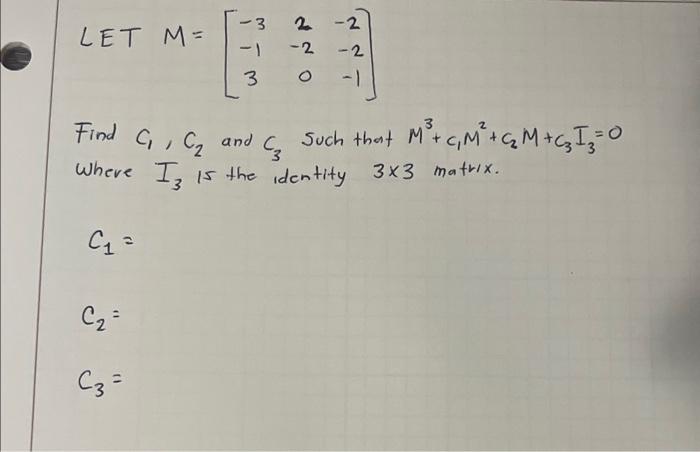 LET M = [ -3 2 -2
-1 -2 -2
3 0 -1 ]
Find C₁, C₂ and C₃ Such that M³ + C₁M² + C₂M + C₃I₃ = 0
Where I₃ is the identity 3x3 matrix.
C₁ =
C₂ =
C₃ =